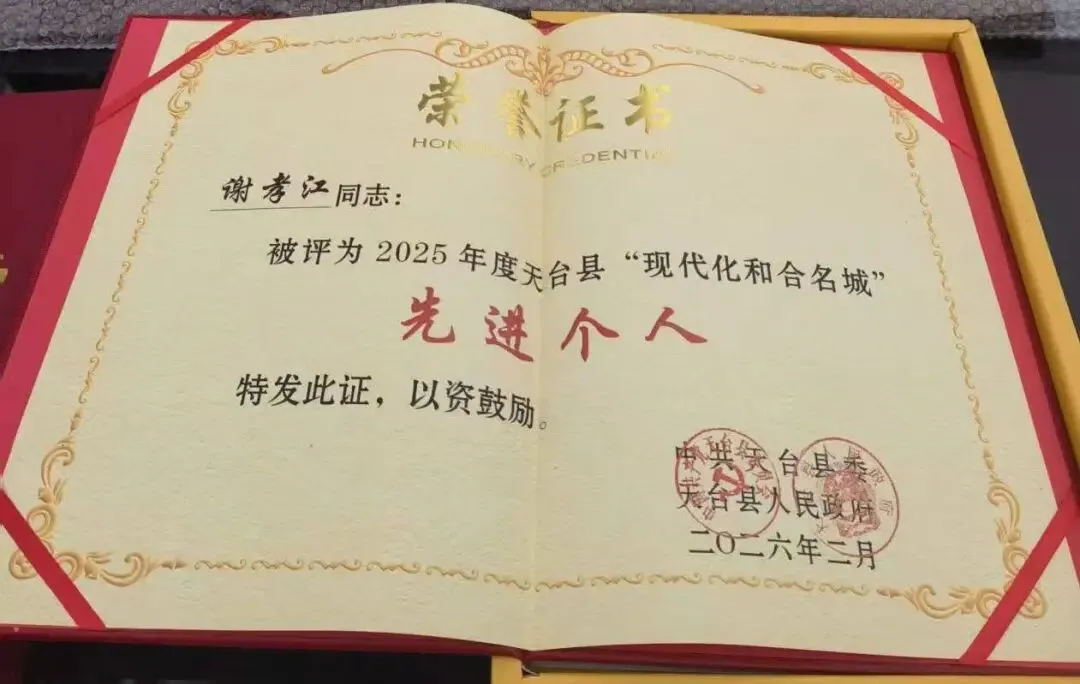 荣誉证书
HONORARY CREDENTIAL
谢孝江同志：
被评为 2025 年度天台县“现代化和合名城”
先进个人
特发此证，以资鼓励。
中共天台县委
天台县人民政府
二〇二六年二月